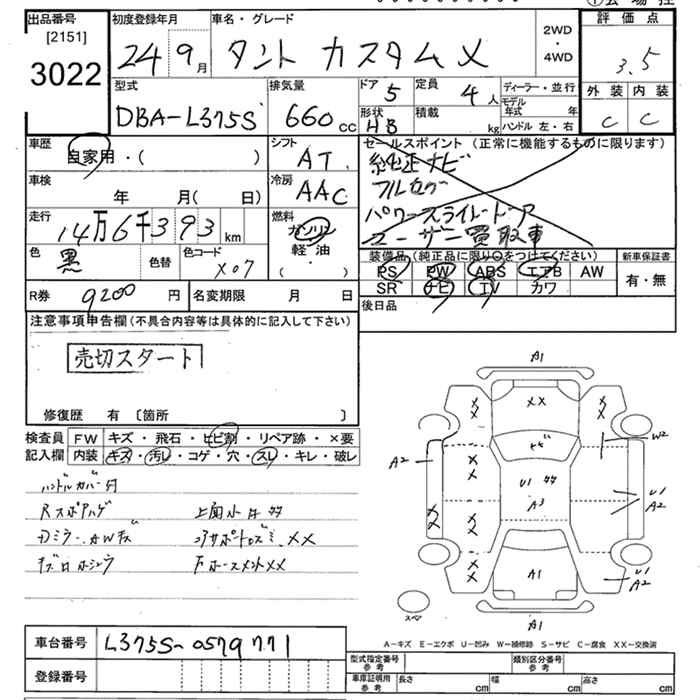 出品番号
[2151]
3022
初度登録年月
24 9月
車名・グレード
タント カスタム X
2WD
・
4WD
評価点
3.5
外装 内装
C C
型式
DBA-L375S
排気量
660cc
ドア 5
形状
HB
定員
4人
積載
kg
ディーラー・並行
モデル年式 年
ハンドル 左・右
車歴
自家用・( )
シフト
AT
セールスポイント (正常に機能するものに限ります)
純正ナビ
フルセグ
パワースライドドア
ユーザー買取車
車検
年 月( 日)
冷房
AAC
走行
14万6千393km
燃料
ガソリン
軽・油
( ・ )
色
黒
色替
色コード
X07
装備品 (純正品に限り○をつけてください)
PS PW ABS エアB AW
SR ナビ TV カワ
新車保証書
有・無
R券 9200円
名変期限 月 日
後日品
注意事項申告欄 (不具合内容等は具体的に記入して下さい)
売切スタート
修復歴 有 〔箇所 〕
検査員記入欄
FW キズ・飛石・ヒビ割・リペア跡・×要
内装 キズ・汚レ・コゲ・穴・スレ・キレ・破レ
ハンドルカバー付
A1
XX
ナビ
W2
A2
U1
A3
U1
A2
A1
U1
A2
スペア
A1
A-キズ E-エクボ U-凹み W-補修跡 S-サビ C-腐食 XX-交換済
車台番号 L375S-0579771
登録番号
型式指定番号
参考
類別区分番号
参考
車庫証明用
参考
長さ cm 幅 cm 高さ cm